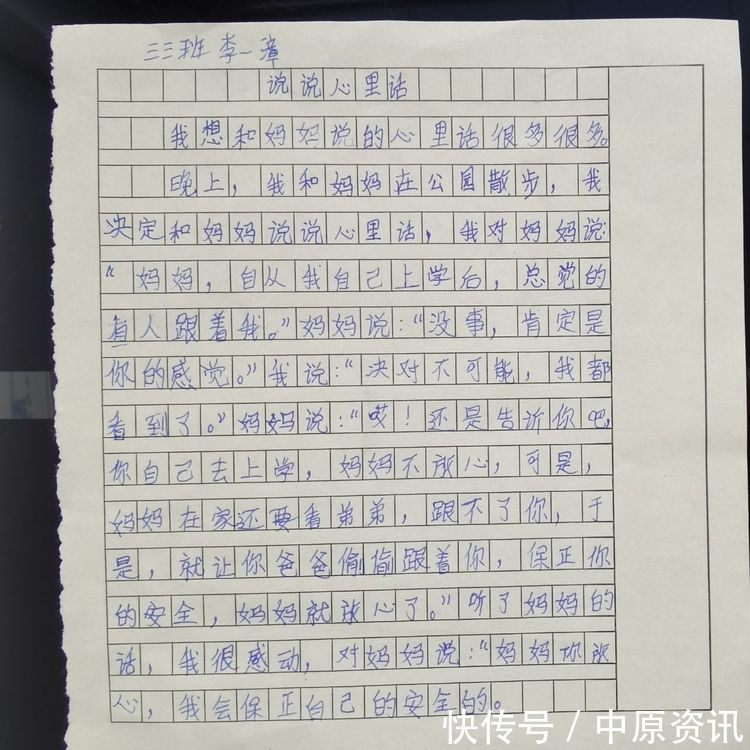 三三班李一漳
说说心里话
我想和妈妈说的心里话很多很多。
晚上，我和妈妈在公园散步，我
决定和妈妈说说心里话，我对妈妈说：
“妈妈，自从我自己上学后，总觉的
有人跟着我。”妈妈说：“没事，肯定是
你的感觉。”我说：“决对不可能，我都
看到了。”妈妈说：“哎！还是告诉你吧，
你自己去上学，妈妈不放心，可是，
妈妈在家还要看弟弟，跟不了你，于
是，就让你爸爸偷偷跟着你，保正你
的安全，妈妈就放心了。”听了妈妈的
话，我很感动，对妈妈说：“妈妈你放
心，我会保正自己的安全的。
快传号 / 中原资讯